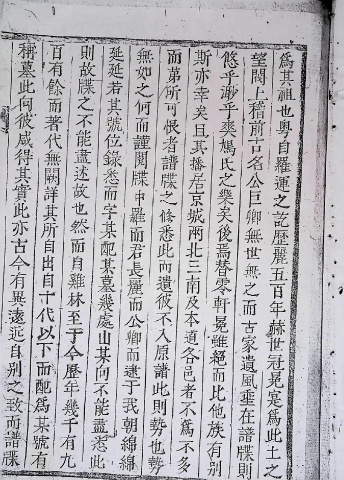 爲其祖也粤自羅運之訖歷麗五百年赫世冠冕寔爲此土之
望閥上稽前古名公巨卿無世無之而古家遺風垂在譜牒則
悠乎渺乎奭鳩氏之樂矣後焉替零軒冕雖絕而比他族有別
斯亦幸矣且其播居京城兩北三南及本道各邑者不爲不多
而第所可恨者譜牒之修悉此而遺彼不入原譜此則勢也勢
無如之何而謹閱牒中羅而君長麗而公卿而逮于我朝綿綿
延延若其號位錄悉而字某配某墓幾處山某向不能盡悉此
則故牒之不能盡述故也然而自雞林至于今歷年幾千有九
百有餘而著代無闕詳其所自出自十代以下而配爲某號有
稱墓此向彼咸得其實此亦古今有異遠近自别之致而譜牒